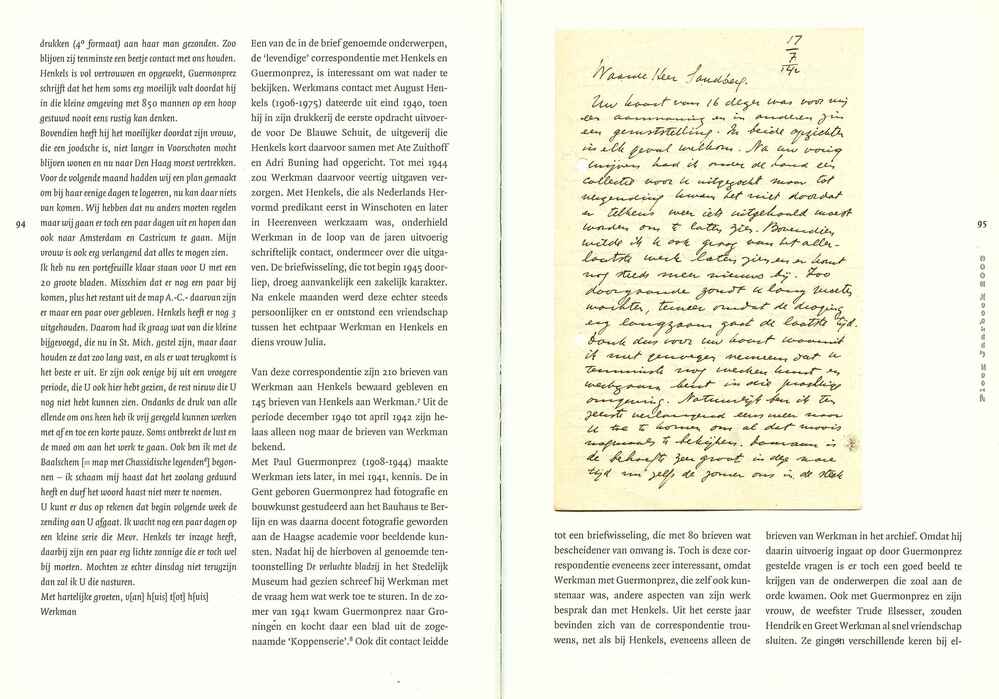 drukken (4° formaat) aan haar man gezonden. Zoo
blijven zij tenminste een beetje contact met ons houden.
Henkels is vol vertrouwen en opgewekt, Guermonprez
schrijft dat het hem soms erg moeilijk valt doordat hij
in die kleine omgeving met 850 mannen op een hoop
gestuwd nooit eens rustig kan denken.
Bovendien heeft hij het moeilijker doordat zijn vrouw,
die een joodsche is, niet langer in Voorschoten mocht
blijven wonen en nu naar Den Haag moest vertrekken.
Voor de volgende maand hadden wij een plan gemaakt
om bij haar eenige dagen te logeeren, nu kan daar niets
van komen. Wij hebben dat nu anders moeten regelen
maar wij gaan er toch een paar dagen uit en hopen dan
ook naar Amsterdam en Castricum te gaan. Mijn
vrouw is ook erg verlangend dat alles te mogen zien.
Ik heb nu een portefeuille klaar staan voor U met een
20 groote bladen. Misschien dat er nog een paar bij
komen, plus het restant uit de map A.-C.- daarvan zijn
er maar een paar over gebleven. Henkels heeft er nog 3
uitgehouden. Daarom had ik graag wat van die kleine
bijgevoegd, die nu in St. Mich. gestel zijn, maar daar
houden ze dat zoo lang vast, en als er wat terugkomt is
het beste er uit. Er zijn ook eenige bij uit een vroegere
periode, die U ook hier hebt gezien, de rest nieuw die U
nog niet hebt kunnen zien. Ondanks de druk van alle
ellende om ons heen heb ik vrij geregeld kunnen werken
met af en toe een korte pauze. Soms ontbreekt de lust en
de moed om aan het werk te gaan. Ook ben ik met de
Baalschem [= map met Chassidische legenden⁶] begon-
nen – ik schaam mij haast dat het zoolang geduurd
heeft en durf het woord haast niet meer te noemen.
U kunt er dus op rekenen dat begin volgende week de
zending aan U afgaat. Ik wacht nog een paar dagen op
een kleine serie die Mevr. Henkels ter inzage heeft,
daarbij zijn een paar erg lichte zonnige die er toch wel
bij moeten. Mochten ze echter dinsdag niet terugzijn
dan zal ik U die nasturen.
Met hartelijke groeten, v[an] h[uis] t[ot] h[uis]
Werkman
94
Een van de in de brief genoemde onderwerpen,
de ‘levendige’ correspondentie met Henkels en
Guermonprez, is interessant om wat nader te
bekijken. Werkmans contact met August Hen-
kels (1906-1975) dateerde uit eind 1940, toen
hij in zijn drukkerij de eerste opdracht uitvoer-
de voor De Blauwe Schuit, de uitgeverij die
Henkels kort daarvoor samen met Ate Zuithoff
en Adri Buning had opgericht. Tot mei 1944
zou Werkman daarvoor veertig uitgaven ver-
zorgen. Met Henkels, die als Nederlands Her-
vormd predikant eerst in Winschoten en later
in Heerenveen werkzaam was, onderhield
Werkman in de loop van de jaren uitvoerig
schriftelijk contact, ondermeer over die uitga-
ven. De briefwisseling, die tot begin 1945 door-
liep, droeg aanvankelijk een zakelijk karakter.
Na enkele maanden werd deze echter steeds
persoonlijker en er ontstond een vriendschap
tussen het echtpaar Werkman en Henkels en
diens vrouw Julia.
Van deze correspondentie zijn 210 brieven van
Werkman aan Henkels bewaard gebleven en
145 brieven van Henkels aan Werkman.⁷ Uit de
periode december 1940 tot april 1942 zijn he-
laas alleen nog maar de brieven van Werkman
bekend.
Met Paul Guermonprez (1908-1944) maakte
Werkman iets later, in mei 1941, kennis. De in
Gent geboren Guermonprez had fotografie en
bouwkunst gestudeerd aan het Bauhaus te Ber-
lijn en was daarna docent fotografie geworden
aan de Haagse academie voor beeldende kun-
sten. Nadat hij de hierboven al genoemde ten-
toonstelling Dr verluchte bladzij in het Stedelijk
Museum had gezien schreef hij Werkman met
de vraag hem wat werk toe te sturen. In de zo-
mer van 1941 kwam Guermonprez naar Gro-
ningen en kocht daar een blad uit de zoge-
naamde ‘Koppenserie’.⁸ Ook dit contact leidde
17
7
1942
Waarde Heer Sandberg.
Uw kaart van 16 dezer was voor mij
een aanmaning en in anderen zin
een geruststelling. In beide opzichten
in elk geval welkom. Na uw vorig
schrijven had ik onder de hand een
collectie voor U uitgezocht maar tot
wegzending kwam het niet doordat
er telkens weer iets uitgehaald moest
worden om te laten zien. Bovendien
wilde ik U ook graag van het aller-
laatste werk laten zien en er komt
nog steeds meer nieuws bij. Zoo
doorgaande zoudt U lang moeten
wachten, temeer omdat de droging
erg langzaam gaat de laatste tijd.
Dank dus voor uw kaart waaruit
ik met genoegen verneem dat U
tenminste nog werken kunt en
werkzaam bent in die prachtige
omgeving. Natuurlijk ben ik ten
zeerste verlangend eens weer naar
U toe te komen om al dat moois
nogmaals te bekijken. Daaraan is
de behoefte zeer groot in deze nare
tijd nu zelfs de zomer ons in de steek
tot een briefwisseling, die met 80 brieven wat
bescheidener van omvang is. Toch is deze cor-
respondentie eveneens zeer interessant, omdat
Werkman met Guermonprez, die zelf ook kun-
stenaar was, andere aspecten van zijn werk
besprak dan met Henkels. Uit het eerste jaar
bevinden zich van de correspondentie trou-
wens, net als bij Henkels, eveneens alleen de
brieven van Werkman in het archief. Omdat hij
daarin uitvoerig ingaat op door Guermonprez
gestelde vragen is er toch een goed beeld te
krijgen van de onderwerpen die zoal aan de
orde kwamen. Ook met Guermonprez en zijn
vrouw, de weefster Trude Elsesser, zouden
Hendrik en Greet Werkman al snel vriendschap
sluiten. Ze gingen verschillende keren bij el-
95